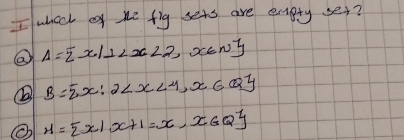 I which of the fig sets are empty set?
(a) A = {x / 1 < x < 2, x ∈ N}
(b) B = {x : 2 < x < 4, x ∈ Q}
(c) H = {x / x + 1 = x, x ∈ Q}